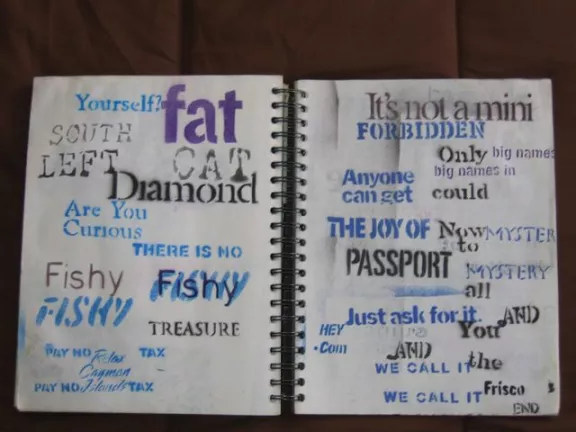 Yourself?
fat
SOUTH
LEFT CAT
Diamond
Are You
Curious
THERE IS NO
Fishy Fishy
FISHY FISHY
TREASURE
PAY NO TAX
Relax
Cayman
PAY NO Islands TAX
It's not a mini
FORBIDDEN
Only big names
big names in
Anyone
can get could
THE JOY OF Now MYSTER
to
PASSPORT MYSTERY
all
Just ask for it. AND
HEY You
.Com AND the
WE CALL IT
WE CALL IT Frisco
END